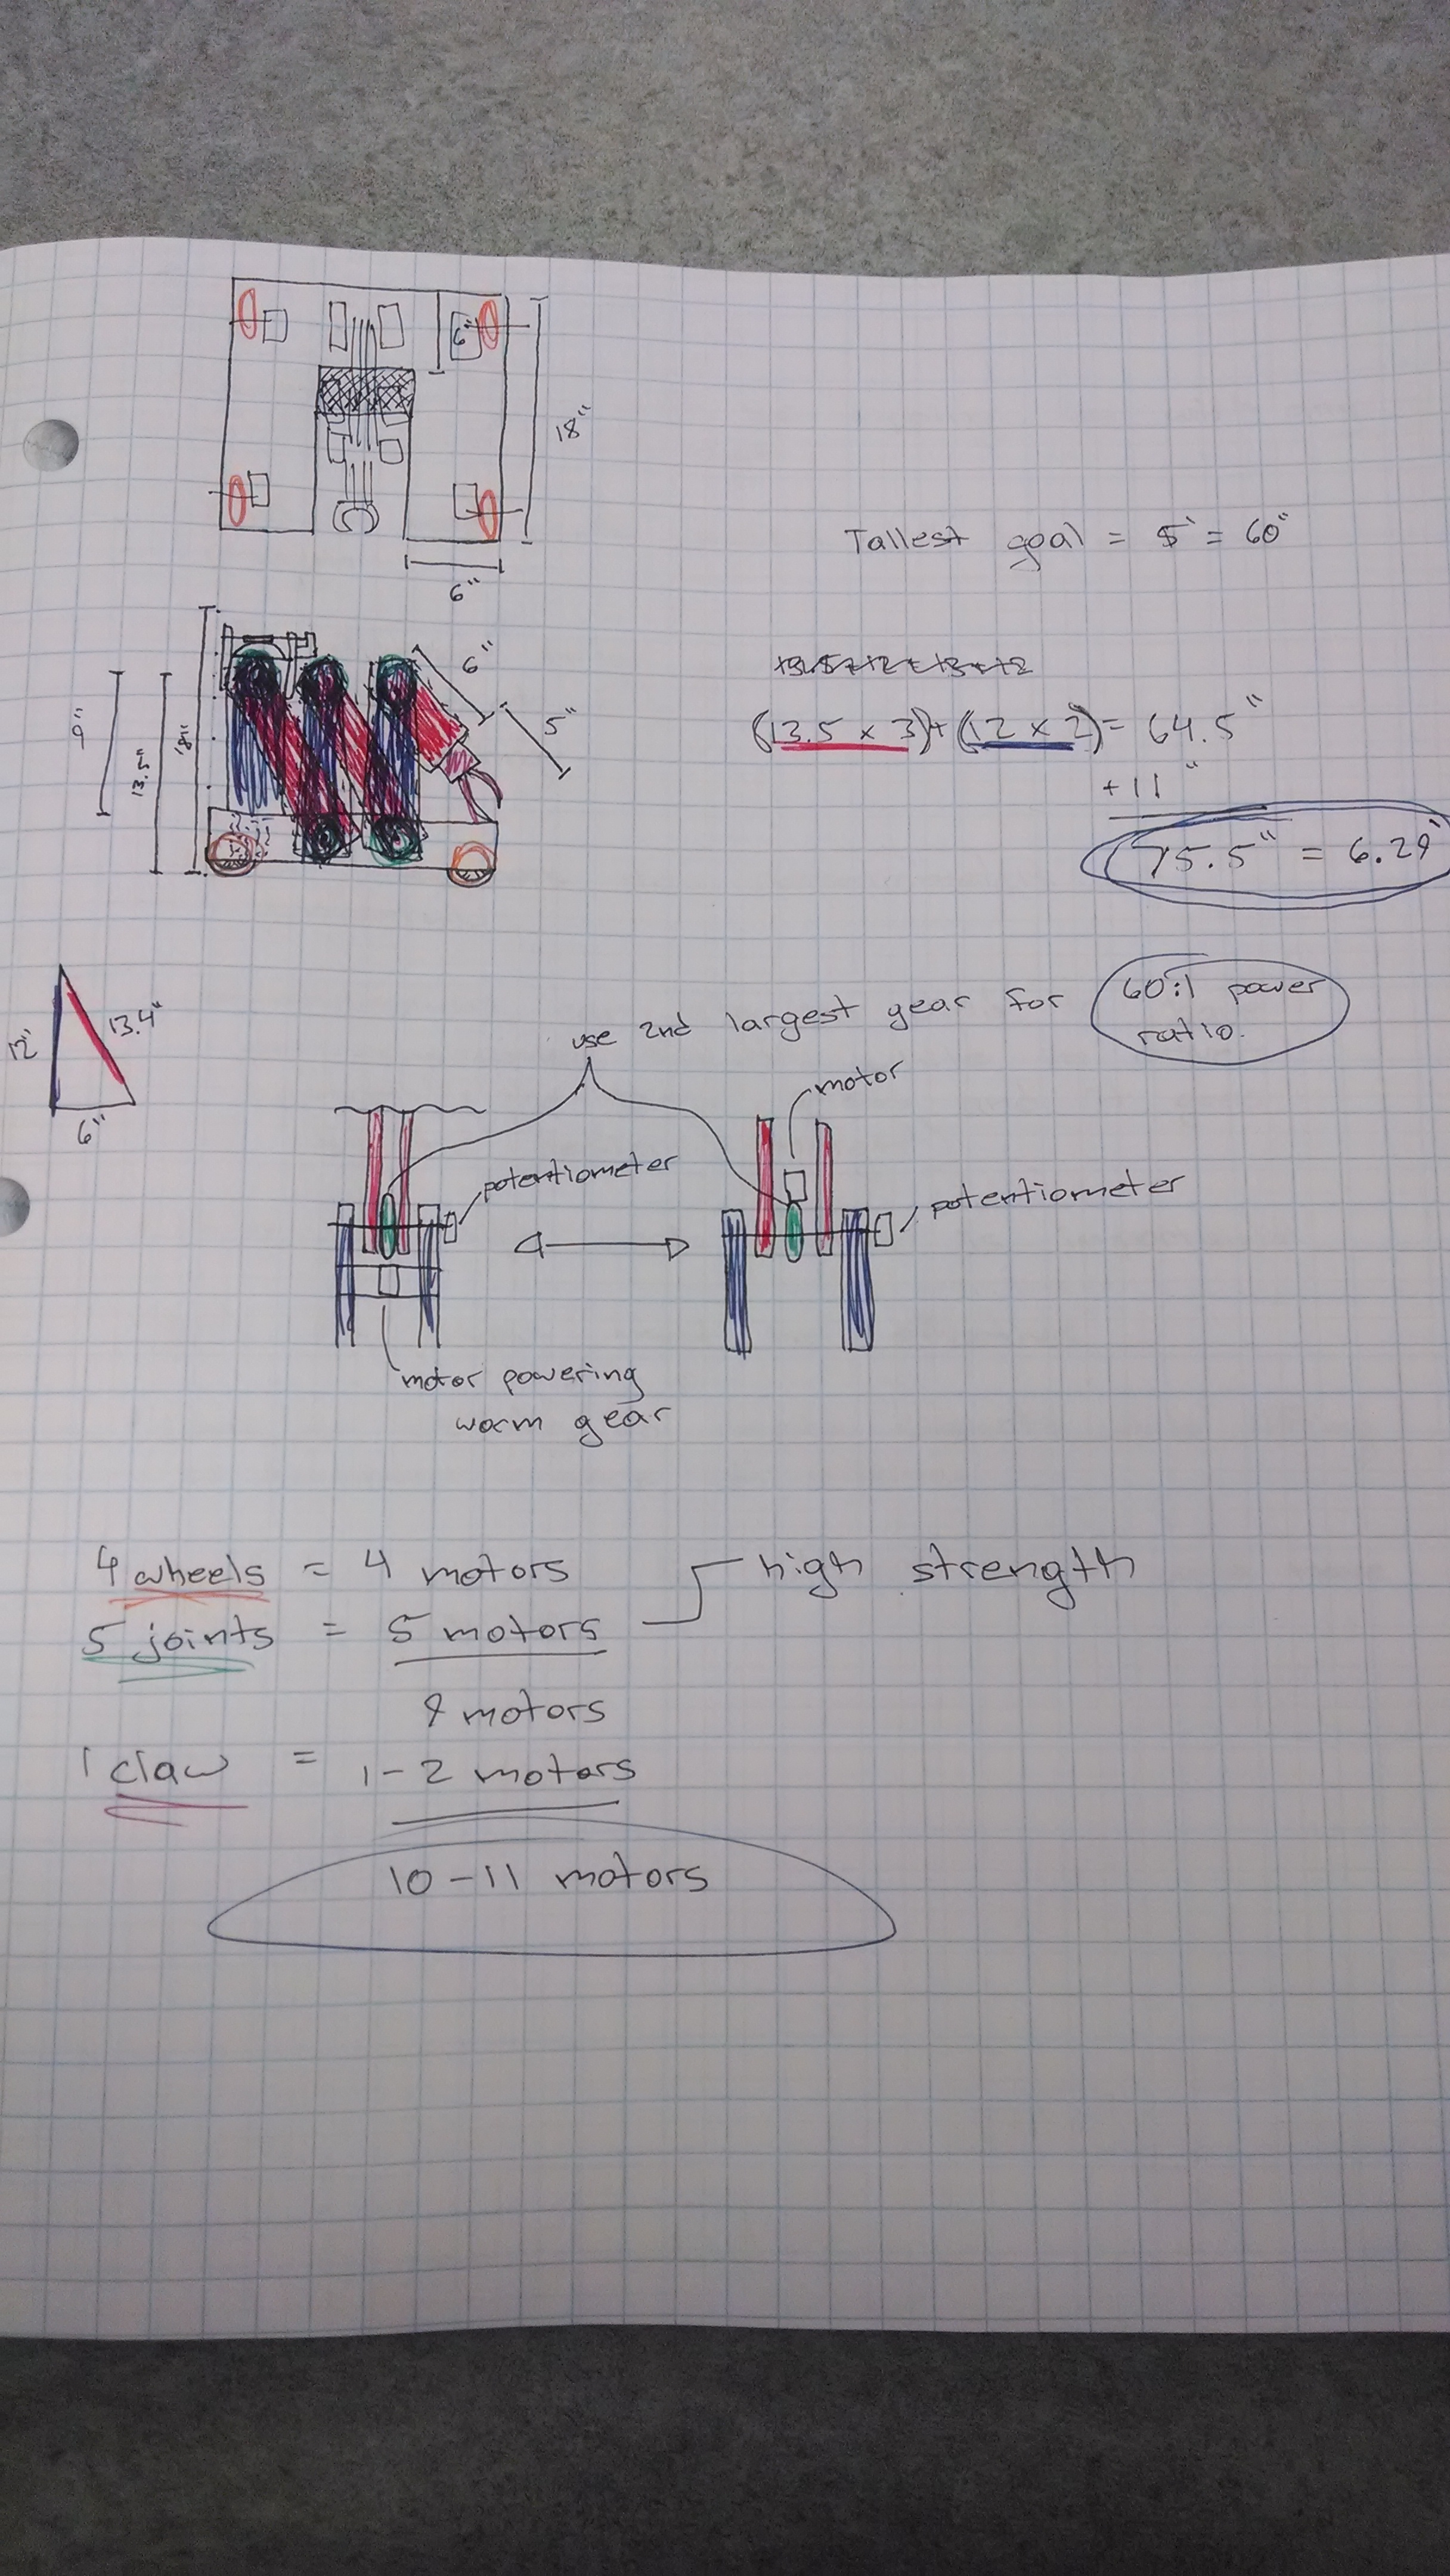 6"
18"
6"
Tallest goal = 5' = 60"
6"
5"
9"
13.5"
18"
(13.5 x 3)+(12 x 2)= 64.5"
+11"
75.5" = 6.29'
12"
13.4"
6"
use 2nd largest gear for 60:1 power
ratio.
motor
potentiometer
potentiometer
motor powering
worm gear
4 wheels = 4 motors
high strength
5 joints = 5 motors
9 motors
1 claw = 1-2 motors
10-11 motors